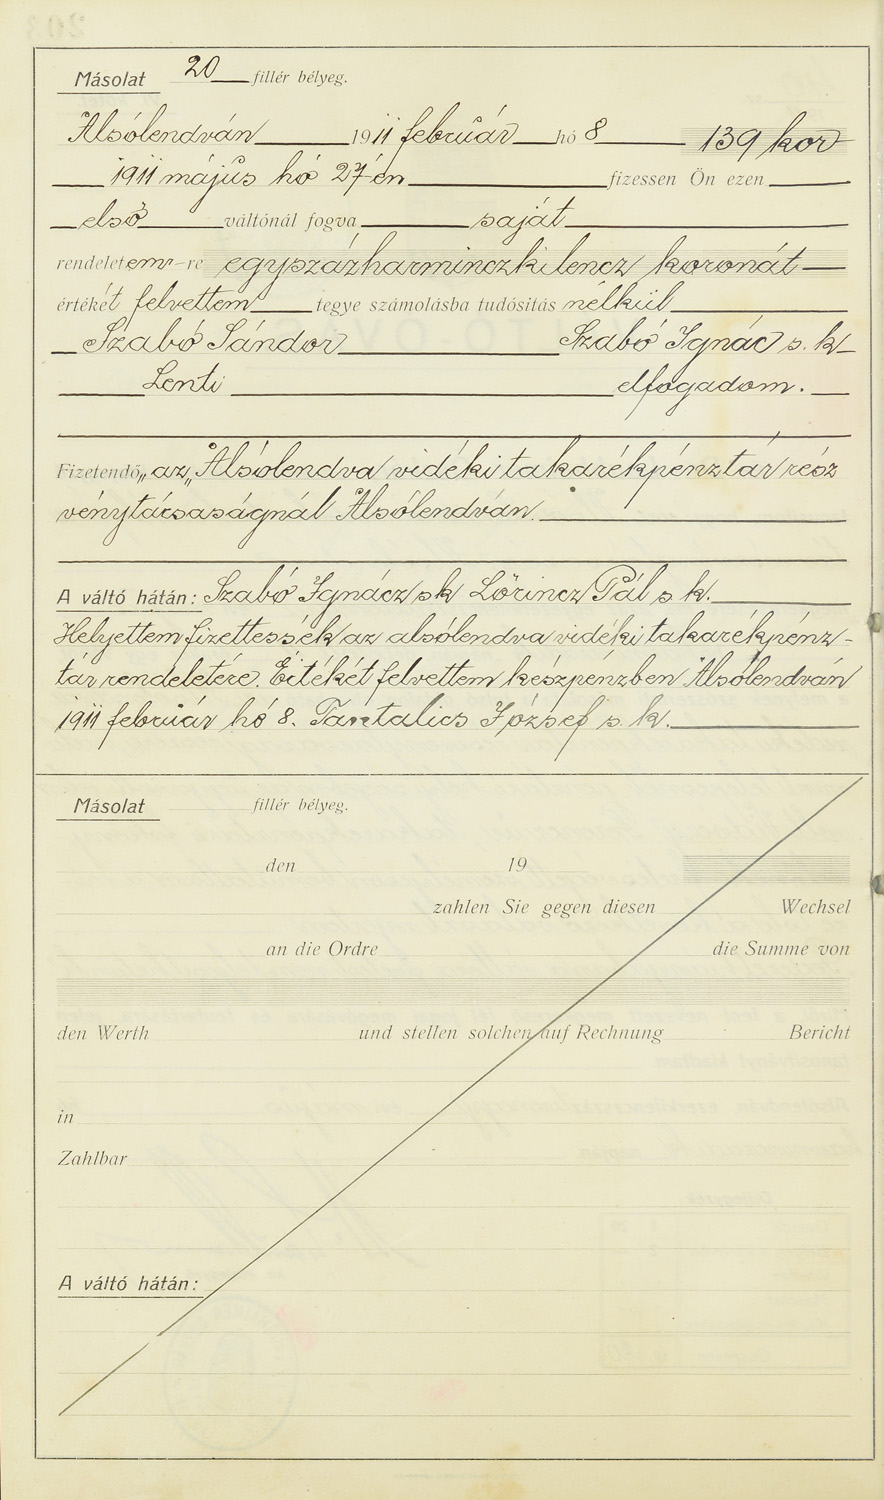 Másolat 20 fillér bélyeg.
Alsólendván 1911 február hó 8 139 kor
1911 május hó 27-én fizessen Ön ezen
első váltónál fogva saját
rendeletem-re egyszázharminczkilencz koronát
értékét felvettem tegye számolásba tudósitás nélkül
Szabó Sándor Szabó Ignác s. k
Lenti elfogadom.
Fizetendő „az „Alsólendva vidéki takarékpénztár rész
vénytácsaságnál Alsólendván.
A váltó hátán: Szabó Ignácz sk Lörincz Pál s k.
Helyettem fizettessék az alsólendva vidéki takarékpénz-
tár rendeletére. Értékét felvettem készpénzben Alsólendván
1911 február hó 8. Tantalics József s. k.
Másolat fillér bélyeg.
den 19
zahlen Sie gegen diesen Wechsel
an die Ordre die Summe von
den Werth und stellen solchen auf Rechnung Bericht
in
Zahlbar
A váltó hátán: